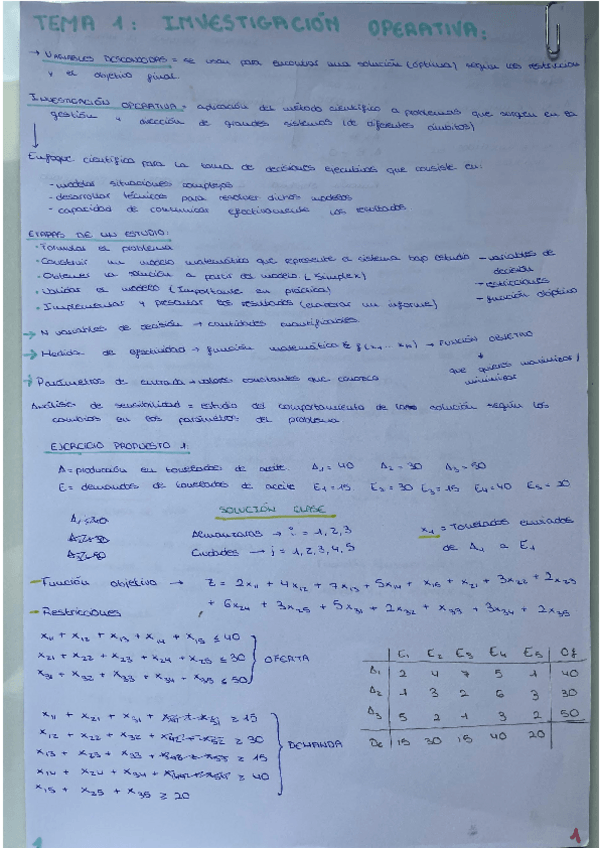 TEMA 1: INVESTIGACIÓN OPERATIVA:
→ VARIABLES DESCONOCIDAS = se usan para encontrar una solución (óptima) según las restricciones
y el objetivo final.
INVESTIGACIÓN OPERATIVA = aplicación del método científico a problemas que surgen en la
gestión y dirección de grandes sistemas (de diferentes ámbitos)
Enfoque científico para la toma de decisiones ejecutivas que consiste en:
- modelar situaciones complejas
- desarrollar técnicas para resolver dichos modelos
- capacidad de comunicar efectivamente los resultados.
ETAPAS DE UN ESTUDIO:
· Formular el problema
· Construir un modelo matemático que represente el sistema bajo estudio - variables de
decisión
· Obtener la solución a partir del modelo. (Simplex)
- restricciones
· Validar el modelo (Importante en práctica)
- función objetivo
· Implementar y presentar los resultados (elaborar un informe)
→ N variables de decisión → cantidades cuantificables
→ Medida de efectividad → función matemática f(x1...xn) → FUNCIÓN OBJETIVO
↓
que quiero maximizar/
minimizar
→ Parámetros de entrada → valores constantes que conozco
Análisis de sensibilidad = estudio del comportamiento de la solución según los
cambios en los parámetros del problema
EJERCICIO PROPUESTO 1.
A = producción en toneladas de aceite. A1 = 40 A2 = 30 A3 = 50
E = demandas de toneladas de aceite E1 = 15 E2 = 30 E3 = 15 E4 = 40 E5 = 20
SOLUCIÓN CLASE
Almazaras → i = 1, 2, 3
Ciudades → j = 1, 2, 3, 4, 5
x11 = Toneladas enviadas
de A1 a E1
- Función objetivo → Z = 2x11 + 4x12 + 7x13 + 5x14 + x15 + x21 + 3x22 + 2x23
+ 6x24 + 3x25 + 5x31 + 2x32 + x33 + 3x34 + 2x35
- Restricciones
x11 + x12 + x13 + x14 + x15 ≤ 40
x21 + x22 + x23 + x24 + x25 ≤ 30
x31 + x32 + x33 + x34 + x35 ≤ 50
OFERTA
x11 + x21 + x31 ≥ 15
x12 + x22 + x32 ≥ 30
x13 + x23 + x33 ≥ 15
x14 + x24 + x34 ≥ 40
x15 + x25 + x35 ≥ 20
DEMANDA
E1 E2 E3 E4 E5 Of
A1 2 4 7 5 1 40
A2 1 3 2 6 3 30
A3 5 2 1 3 2 50
De 15 30 15 40 20
1
1